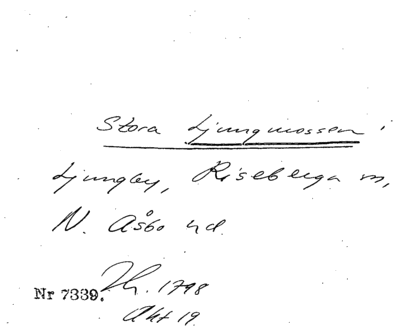 Stora Ljungmossen i
Ljungby, Riseberga sn,
N. Åsbo hd.
Nr 7339. Jh. 1798
Akt 19.